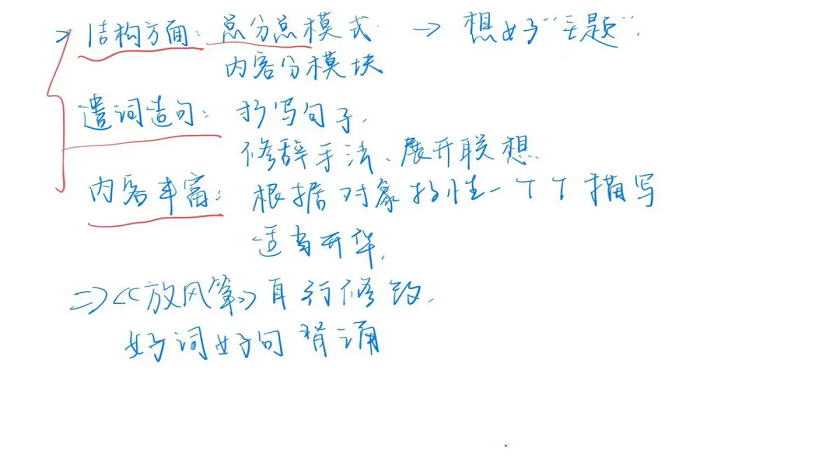 结构方面：总分总模式 → 想好“主题”.
内容分模块
遣词造句：抄写句子.
修辞手法、展开联想.
内容丰富：根据对象特性一个个描写
适当升华.
⇒《放风筝》自行修改.
好词好句背诵